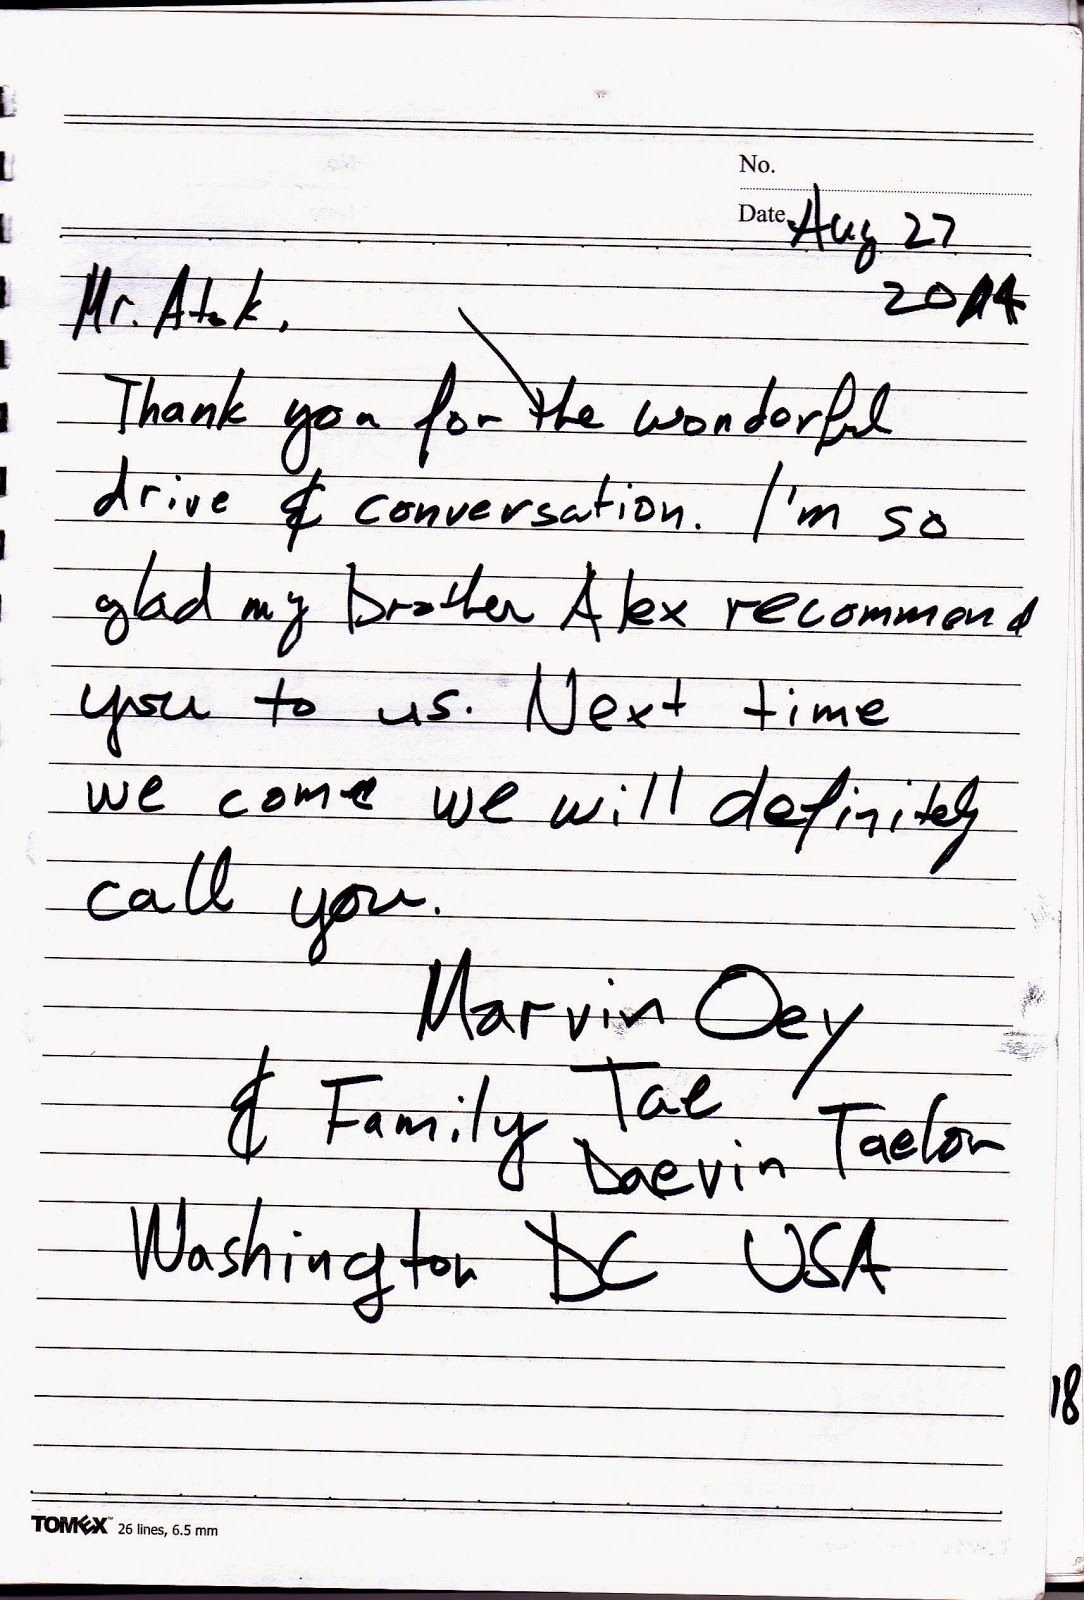 No.
Date Aug 27
2014
Mr. Atok,
Thank you for the wonderful
drive & conversation. I'm so
glad my brother Alex recommend
you to us. Next time
we come we will definitely
call you.
Marvin Oey
& Family Tae
Daevin Taelor
Washington DC USA
18
TOMEX™ 26 lines, 6.5 mm